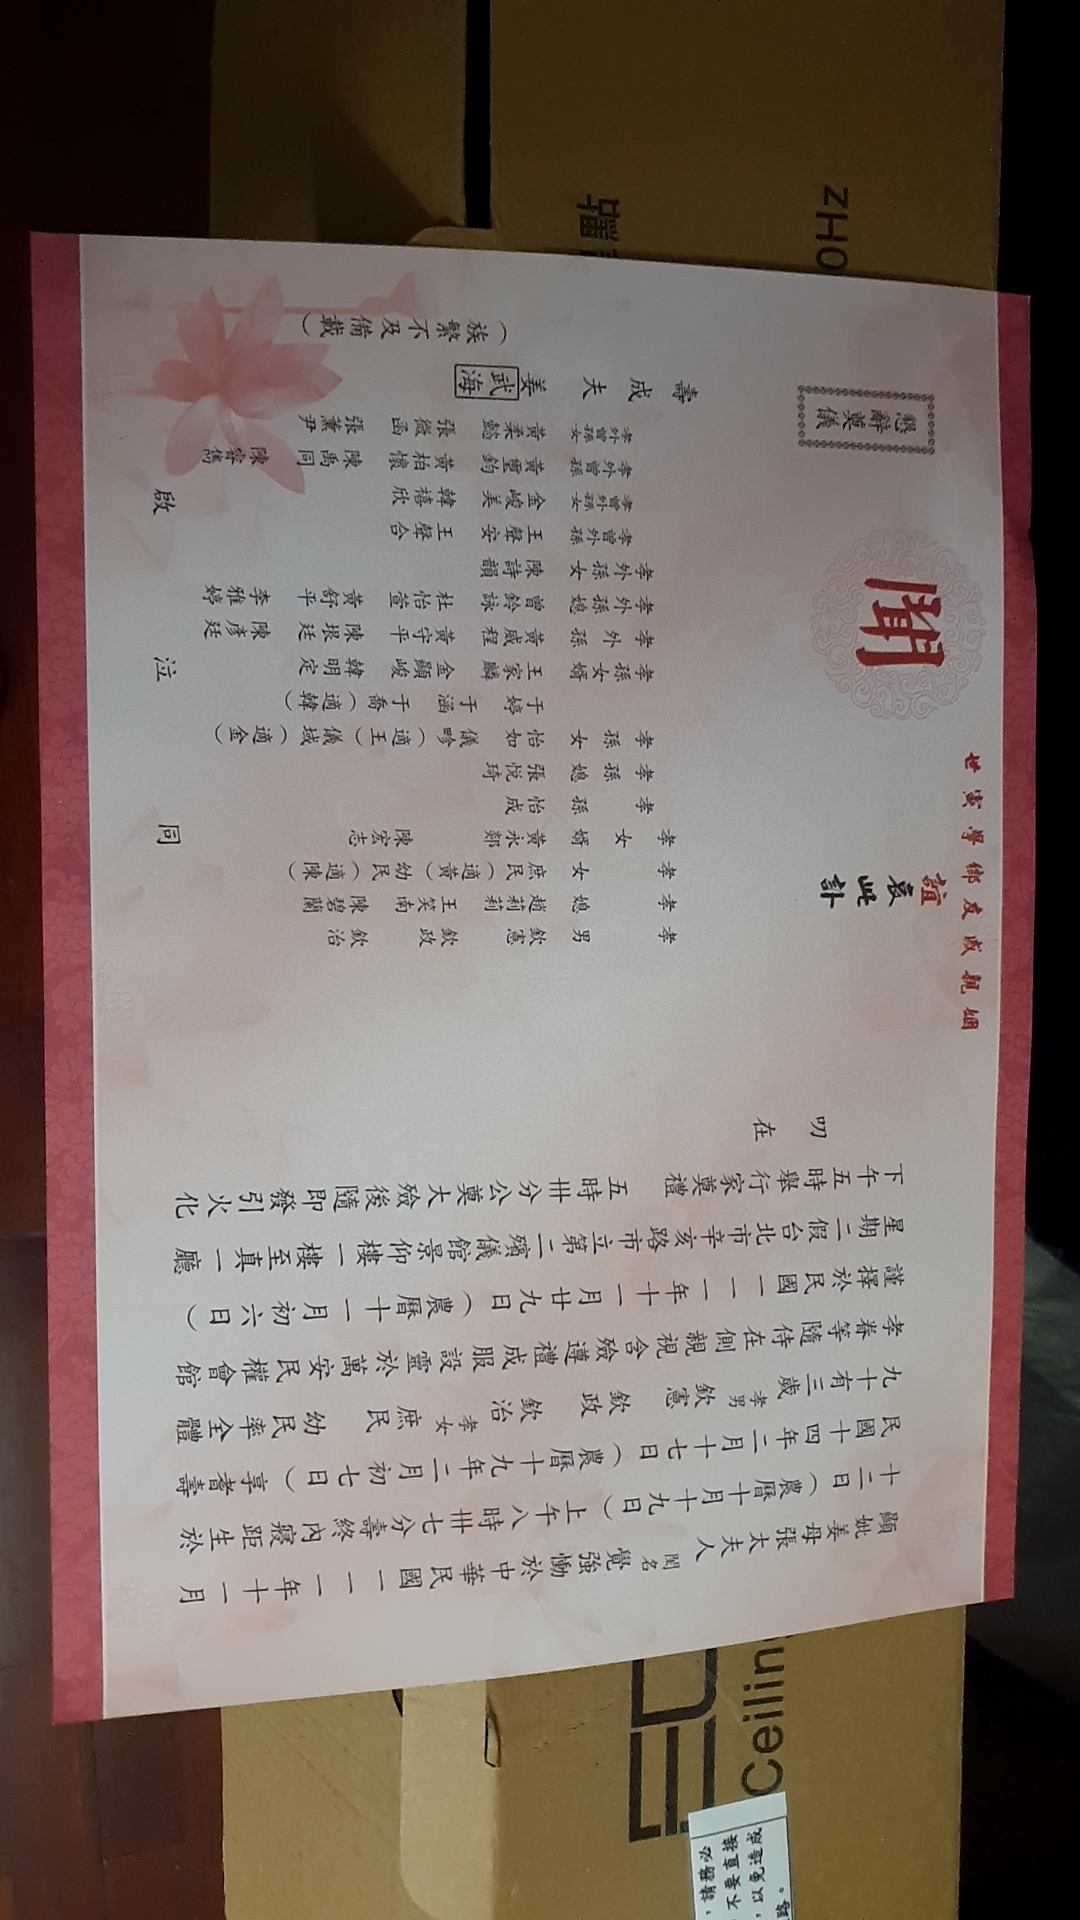 顯妣姜母張太夫人閨名覺強慟於中華民國一一一年十一月
十二日（農曆十月十九日）上午八時卅七分壽終內寢距生於
民國十四年二月十七日（農曆十九年二月初七日）享耆壽
九十有三歲孝男欽憲 欽政 欽治 孝女庶民 幼民率全體
孝眷等隨侍在側親視含殮遵禮成服設靈於萬安民權會館
謹擇於民國一一一年十一月廿九日（農曆十一月初六日）
星期二假台北市辛亥路市立第二殯儀館景仰樓一樓至真一廳
下午五時舉行家奠禮 五時卅分公奠大殮後隨即發引火化
叨
在
姻親戚友鄉學寅世
誼
哀此訃
聞
懇辭奠儀
孝男 欽憲 欽政 欽治
孝媳 趙莉莉 王笑南 陳碧蘭
孝女 庶民（適黃） 幼民（適陳）
孝女婿 黃永鄒 陳宏志
孝孫 怡成
孝孫媳 張悅琦
孝孫女 怡如 儀畛（適王） 儀域（適金）
于婷 于涵 于喬（適韓）
孝孫女婿 王家麟 金顯峻 韓明定
孝外孫 黃威程 黃守平 陳垠廷 陳彥廷
孝外孫媳 曾鈴詠 杜怡萱 黃舒平 李雅婷
孝外孫女 陳詩韻
孝外曾孫 王聲安 王聲合
孝外曾孫女 金峻美 韓禧欣
孝外曾孫 黃聖鈞 黃柏懷 陳禹同 陳睿雋
孝外曾孫女 黃柔懿 張微函 張薰尹
壽成夫 姜武海
（族繁不及備載）
同泣啟
瑞
ZHO
Ceilin